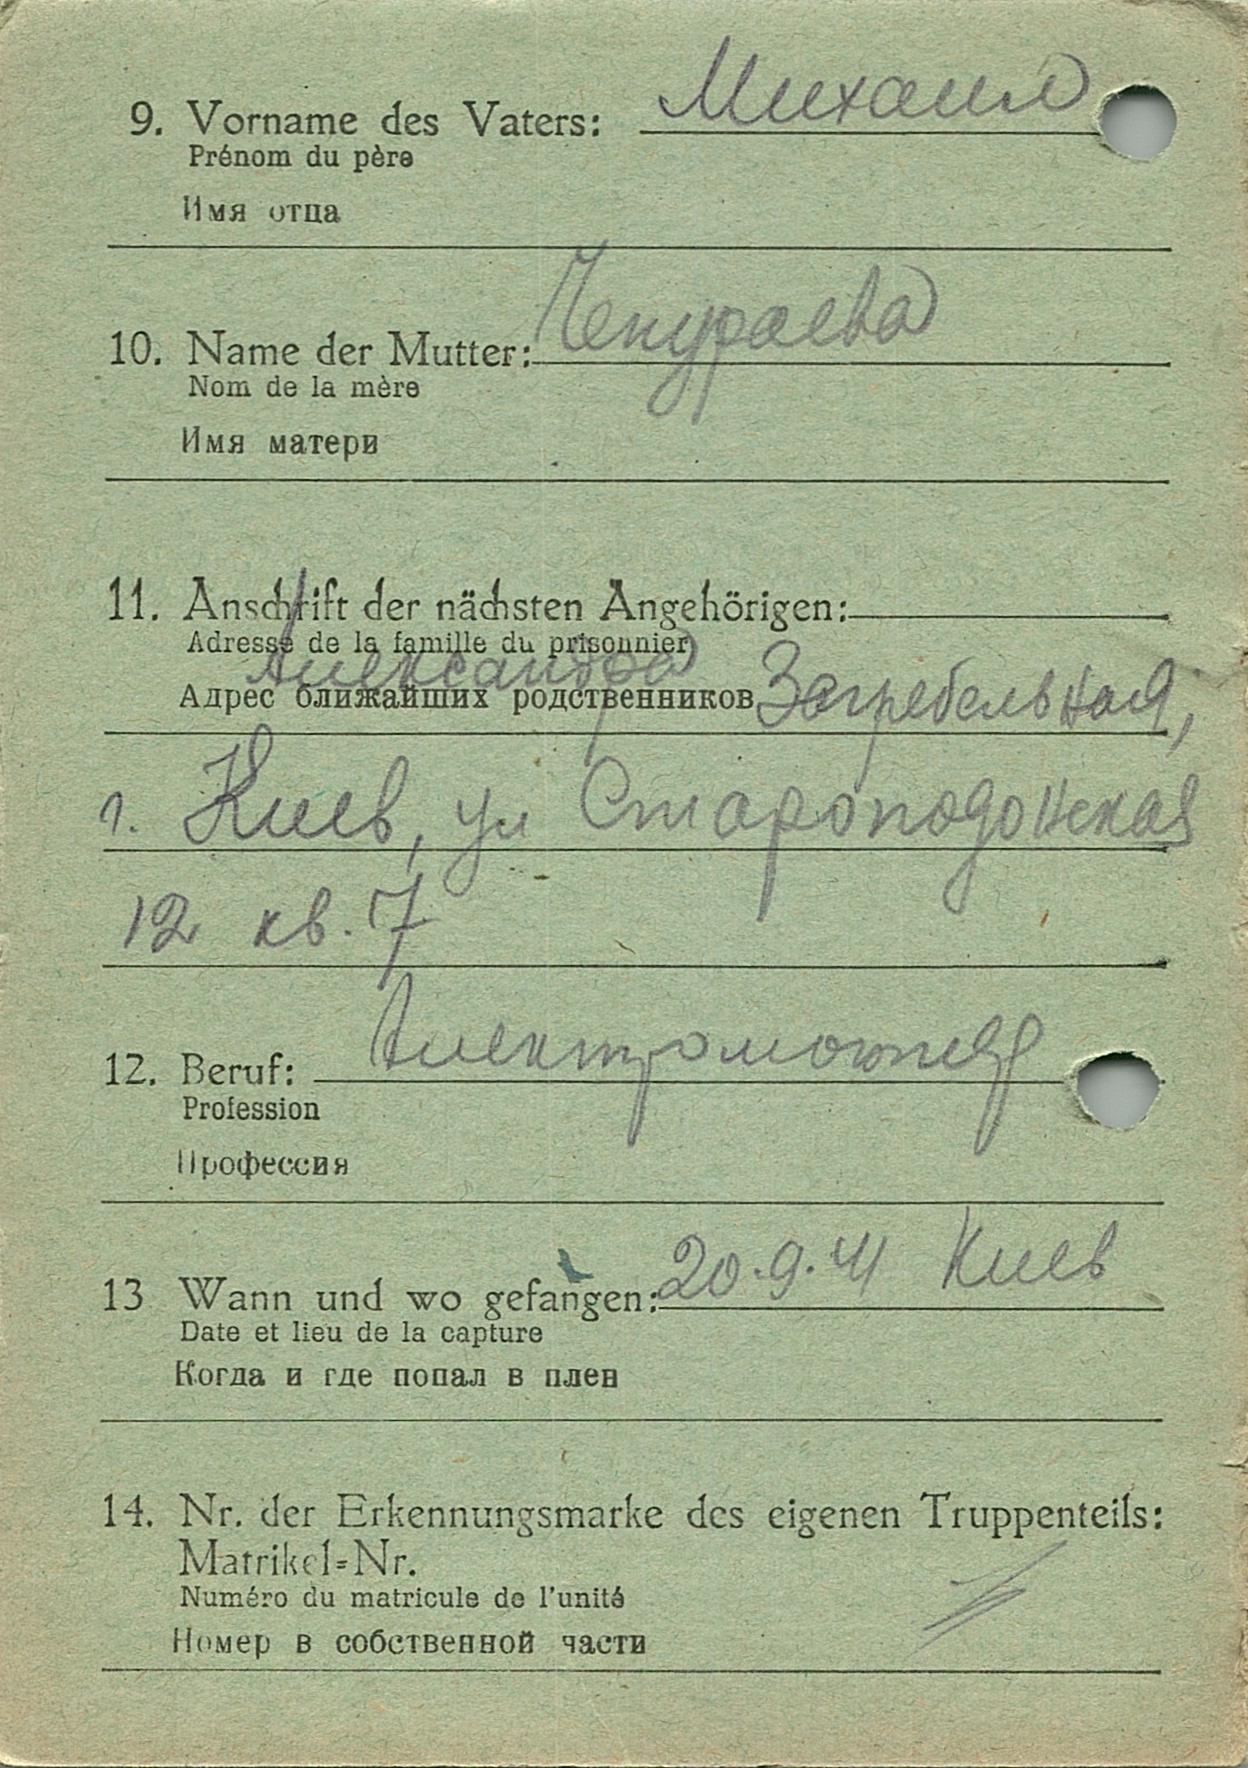 9. Vorname des Vaters: Михаил
Prénom du père
Имя отца
10. Name der Mutter: Чекураева
Nom de la mère
Имя матери
11. Anschrift der nächsten Angehörigen:
Adresse de la famille du prisonnier
Александра
Адрес ближайших родственников Загребельная,
г. Киев, ул Староподонская
12 кв. 7
12. Beruf:
Profession
Профессия
13 Wann und wo gefangen: 20.9.41 Киев
Date et lieu de la capture
Когда и где попал в плен
14. Nr. der Erkennungsmarke des eigenen Truppenteils:
Matrikel=Nr.
Numéro du matricule de l'unité
Номер в собственной части